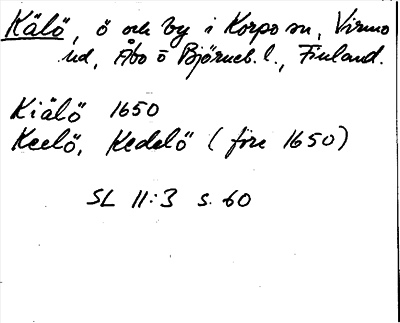 Kälö, ö och by i Korpo sn, Virmo
hd, Åbo o Björneb. l., Finland.
Kiälö 1650
Keelö, Kedelö (före 1650)
SL 11:3 s. 60